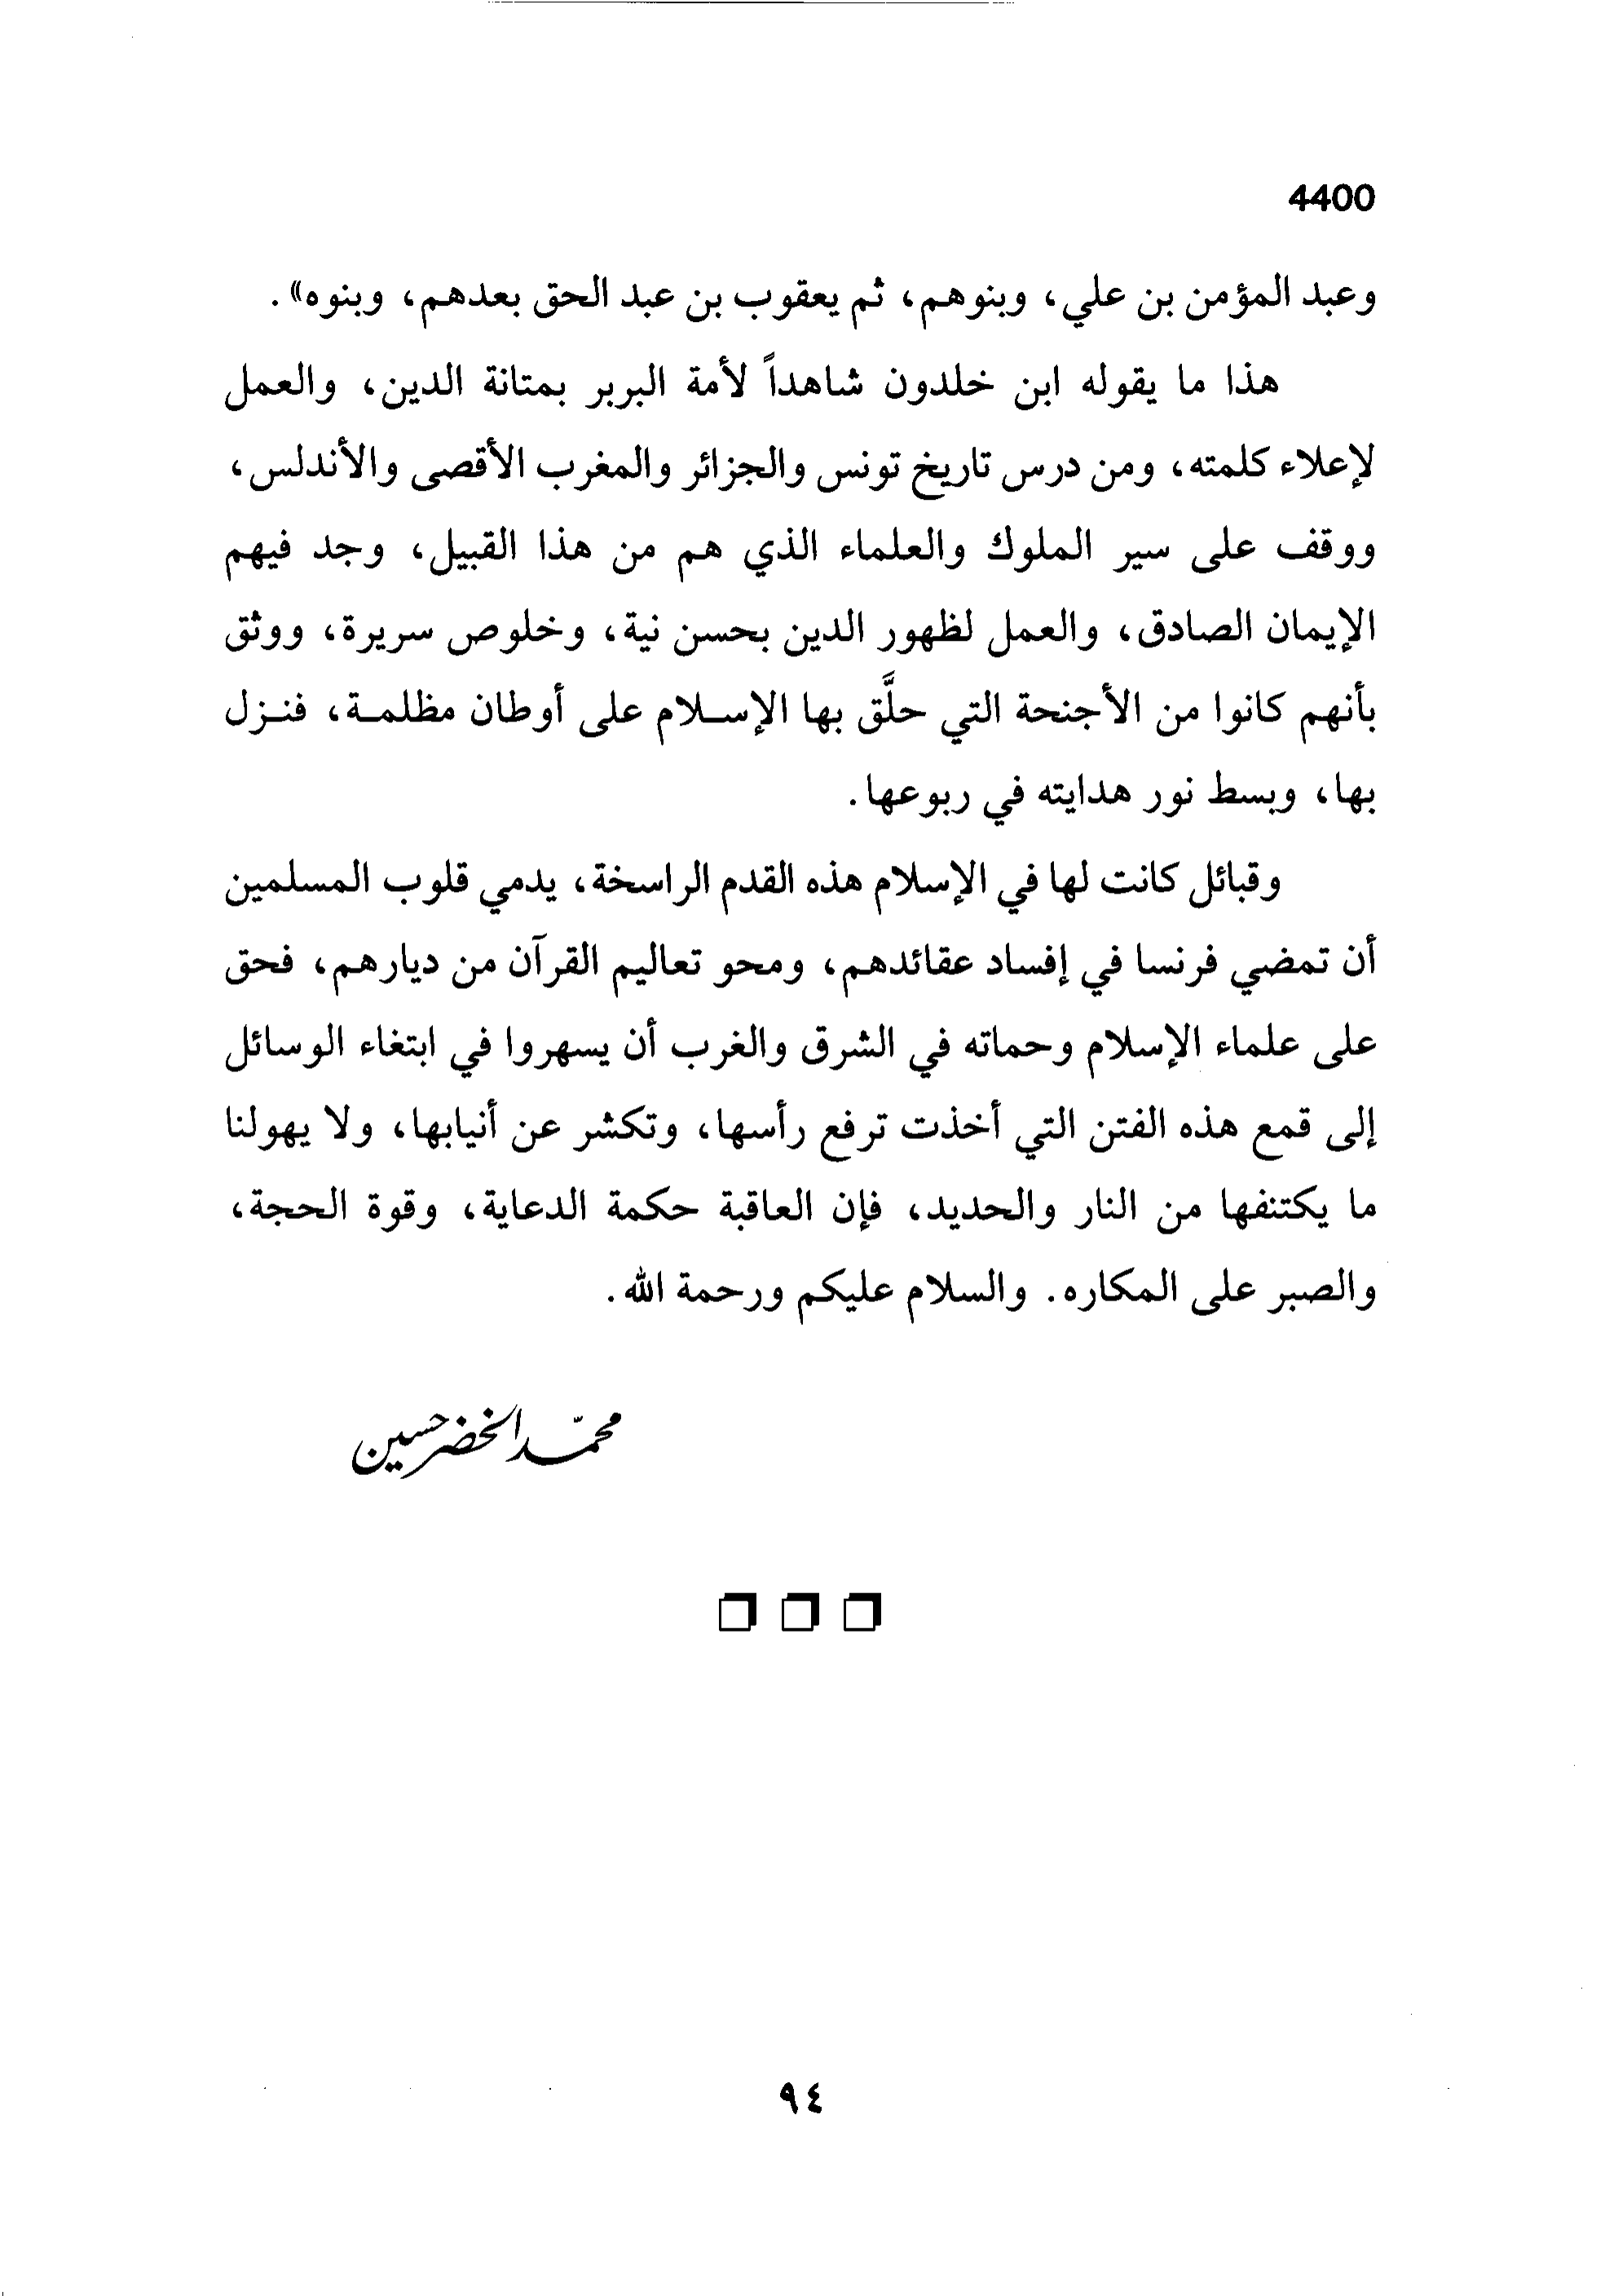 4400
وعبد المؤمن بن علي، وبنوهم، ثم يعقوب بن عبد الحق بعدهم، وبنوه».
هذا ما يقوله ابن خلدون شاهداً لأمة البربر بمتانة الدين، والعمل
لإعلاء كلمته، ومن درس تاريخ تونس والجزائر والمغرب الأقصى والأندلس،
ووقف على سير الملوك والعلماء الذي هم من هذا القبيل، وجد فيهم
الإيمان الصادق، والعمل لظهور الدين بحسن نية، وخلوص سريرة، ووثق
بأنهم كانوا من الأجنحة التي حلَّق بها الإسلام على أوطان مظلمة، فنزل
بها، وبسط نور هدايته في ربوعها.
وقبائل كانت لها في الإسلام هذه القدم الراسخة، يدمي قلوب المسلمين
أن تمضي فرنسا في إفساد عقائدهم، ومحو تعاليم القرآن من ديارهم، فحق
على علماء الإسلام وحماته في الشرق والغرب أن يسهروا في ابتغاء الوسائل
إلى قمع هذه الفتن التي أخذت ترفع رأسها، وتكشر عن أنيابها، ولا يهولنا
ما يكتنفها من النار والحديد، فإن العاقبة حكمة الدعاية، وقوة الحجة،
والصبر على المكاره. والسلام عليكم ورحمة الله.
محمّد الخضر حسين
٩٤